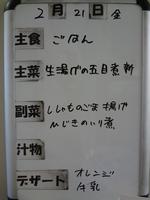 2月21日 金
主食 ごはん
主菜 生揚げの五目煮
副菜 ししゃものごま揚げ
ひじきのいり煮
汁物
デザート オレンジ
牛乳